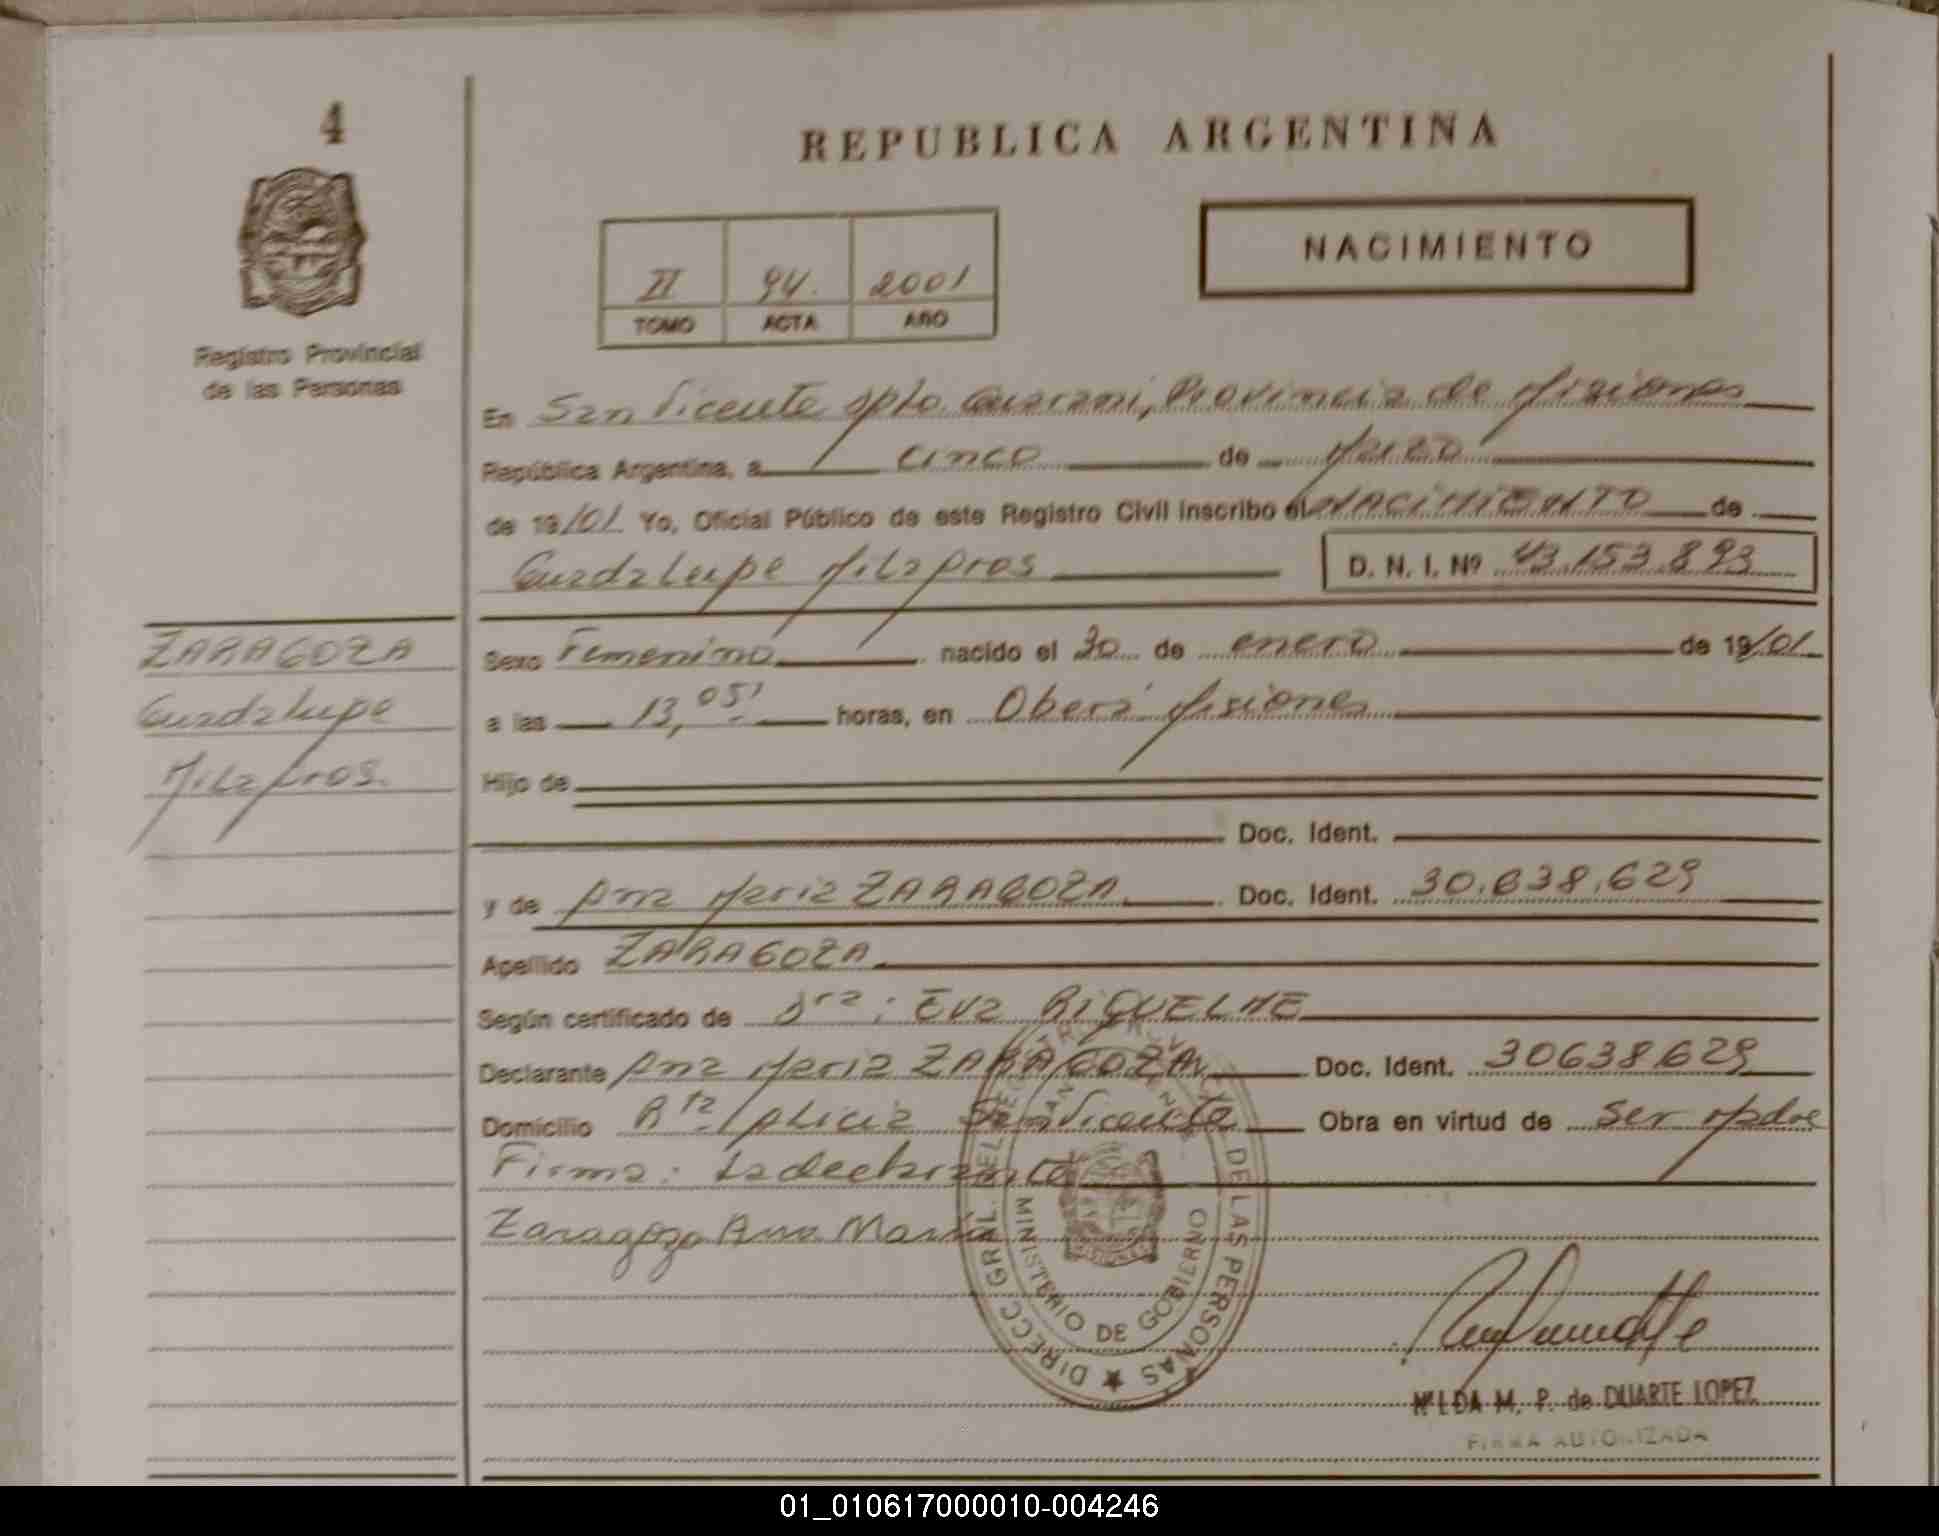 4
REPUBLICA ARGENTINA
NACIMIENTO
II 94. 2001
TOMO ACTA AÑO
Registro Provincial
de las Personas
En San Vicente Dpto. Guarani, Provincia de Misiones
República Argentina, a cinco de Marzo
de 19/01 Yo, Oficial Público de este Registro Civil inscribo el NACIMIENTO de
Guadalupe Milagros D. N. I. Nº 43.153.893
ZARAGOZA
Guadalupe
Milagros.
Sexo Femenino nacido el 30 de enero de 19/01
a las 13,05' horas, en Oberá Misiones
Hijo de
Doc. Ident.
y de Ana Maria ZARAGOZA Doc. Ident. 30.638.629
Apellido ZARAGOZA
Según certificado de Dra: Eva RIQUELME
Declarante Ana Maria ZARAGOZA Doc. Ident. 30638629
Domicilio San Vicente Obra en virtud de ser Madre
Firma: La declarante
Zaragoza Ana María
DIRECC GRAL. DEL DE LAS PERSONAS
MINISTERIO DE GOBIERNO
NILDA M. P. de DUARTE LOPEZ
FIRMA AUTORIZADA
01_010617000010-004246